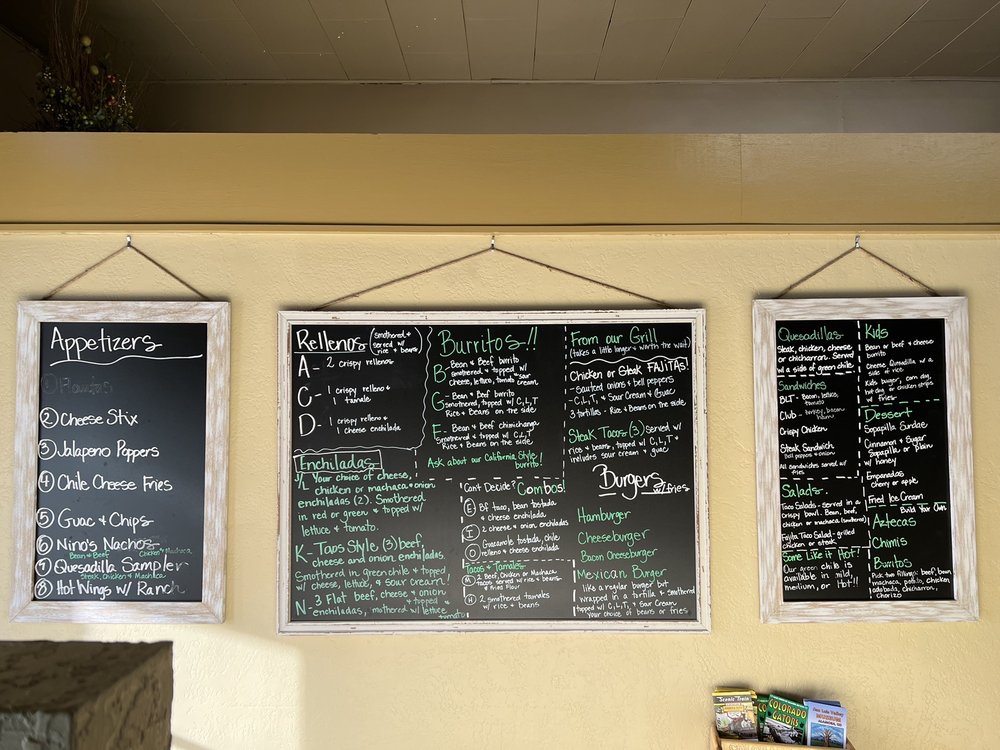 Appetizers
① Flautas
② Cheese Stix
③ Jalapeno Poppers
④ Chile Cheese Fries
⑤ Guac & Chips
⑥ Nino's Nachos
Bean & Beef Chicken & Machaca
⑦ Quesadilla Sampler
Steak, Chicken & Machaca
⑧ Hot Wings w/ Ranch
Rellenos (smothered & served w/ rice & beans
A- 2 crispy rellenos
C- 1 crispy relleno & 1 tamale
D- 1 crispy relleno & 1 cheese enchilada
Enchiladas
Your choice of cheese,
chicken or machaca & onion
enchiladas (2). Smothered
in red or green & topped w/
lettuce & tomato.
K- Taos Style (3) beef,
cheese and onion enchiladas.
Smothered in green chile & topped
w/ cheese, lettuce, & sour cream!
N- 3 Flat beef, cheese & onion
enchiladas, smothered & topped w/ lettuce
tomato
Burritos!!
B- Bean & Beef burrito
smothered, topped w/
cheese, lettuce, tomato & sour cream.
G- Bean & Beef Burrito
Smothered, topped w/ C, L, T
Rice & Beans on the side
F- Bean & Beef chimichanga
Smothered & topped w/ C, L, T,
Rice & Beans on the side
Ask about our California Style
burrito!
Can't Decide? Combos!
E Bf taco, bean tostada
& cheese enchilada
I 2 cheese & onion enchiladas
O Guacamole tostada, chile
relleno & cheese enchilada
Tacos & Tamales
M 2 Beef, Chicken or Machaca
tacos served w/ rice & beans
& fried flour
H 2 smothered tamales
w/ rice & beans
From our Grill
(takes a little longer & worth the wait)
Chicken or Steak FAJITAS!
- sauteed onions & bell peppers
- C, L, T, & Sour Cream & Guac
3 tortillas - Rice & Beans on the side
Steak Tacos (3) Served w/
rice & beans, topped w/ C, L, T &
includes sour cream & guac
Burgers
w/ fries
Hamburger
Cheeseburger
Bacon Cheeseburger
Mexican Burger
like a regular burger but
wrapped in a tortilla & smothered
topped w/ C, L, T, & Sour Cream
Your choice of beans or fries
Quesadillas
Steak, chicken, cheese
or chicharron. Served
w/ a side of green chile.
Sandwiches
BLT - bacon, lettuce,
tomato
Club - turkey, bacon
Crispy Chicken
Steak Sandwich
Bell peppers & onion
All sandwiches served w/
fries
Salads
Taco Salads - served in a
crispy bowl. Bean, beef,
chicken or machaca
Fajita Taco Salad - grilled
chicken or steak
Some Like it Hot!
Our green chile is
available in mild,
medium, or Hot!!
Kids
Bean or beef & cheese
burrito
Cheese Quesadilla w/ a
side of rice
Kids burger, corn dog,
hot dog or chicken strips
w/ fries
Dessert
Sopapilla Sundae
Cinnamon & Sugar
Sopapilla or plain
w/ honey
Empanadas
cherry or apple
Fried Ice Cream
Build Your Own
Aztecas
Chimis
Buritos
Pick two fillings: beef, bean,
machaca, potato, chicken,
adovada, chicharron,
Chorizo
Scenic Train
COLORADO
GATORS
San Luis Valley
MUSEUM
ALAMOSA, CO